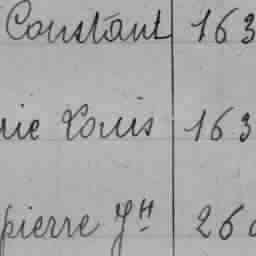 Constant 163
rie Louis 163
pierre Jh 260